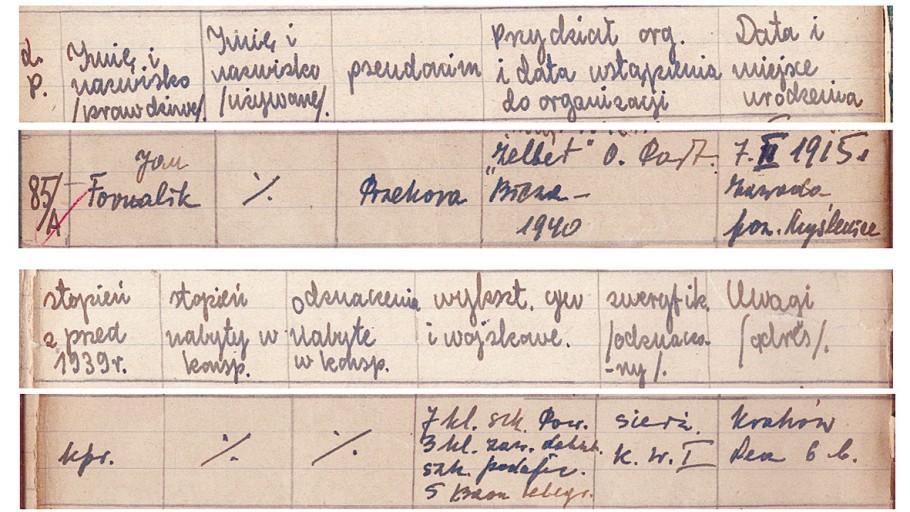 L. p.
Imię i nazwisko /prawdziwe/
Imię i nazwisko /używane/
pseudonim
Przydział org. i data wstąpienia do organizacji
Data i miejsce urodzenia
85/A
Jan Fornalik
%
Przekora
"Żelbet" O. Part.
1940
7. II 1915.
Zawada pow. Myślenice
stopień z przed 1939r.
stopień nabyty w konsp.
Odznaczenia nabyte w konsp.
wykszt. cyw i wojskowe.
zweryfik. /odznaczo-ny/.
Uwagi /adres/.
kpr.
%
%
7 kl. szk. Pow.
3 kl. zaw. dokszt.
szk. podofic.
5 Baon telegr.
sierż.
K. W. I
Kraków
6 b.